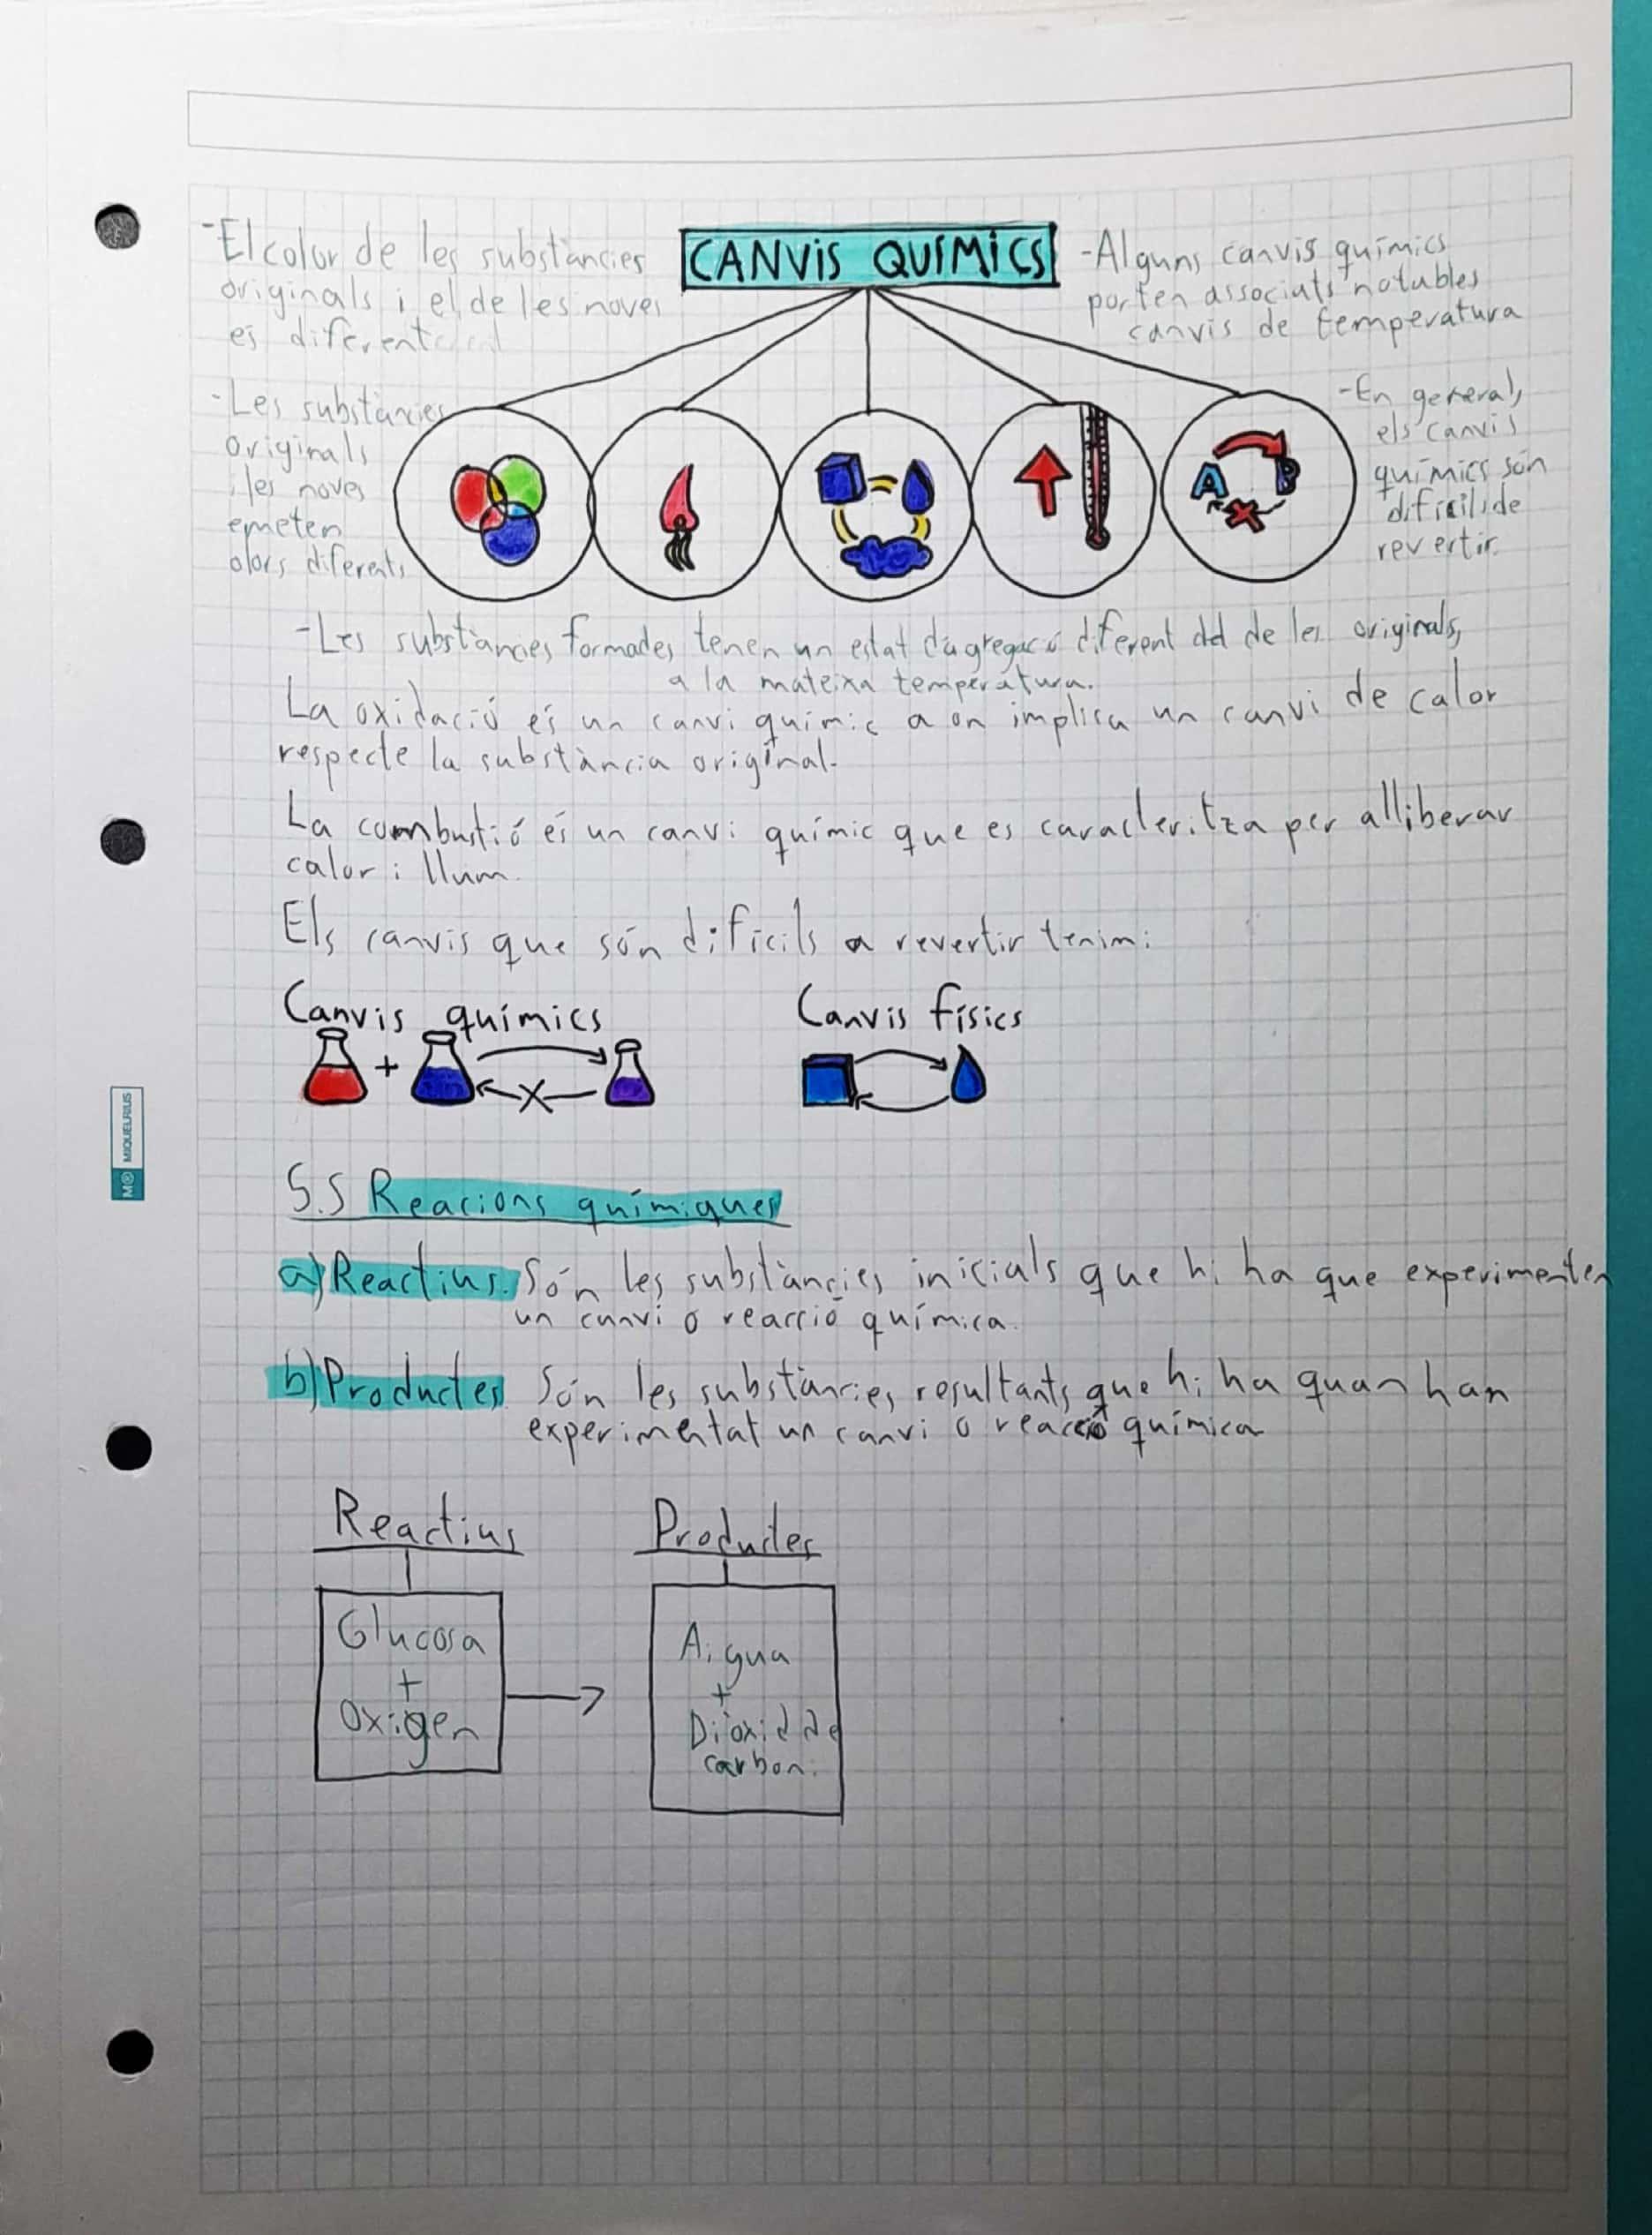 CANVIS QUÍMICS
-El color de les substàncies
originals i el de les noves
és diferent
-Les substàncies
originals
i les noves
emeten
olors diferents
-Alguns canvis químics
porten associats notables
canvis de temperatura
-En general,
els canvis
químics són
difícils de
revertir.
A B
-Les substàncies formades tenen un estat d'agregació diferent del de les originals,
a la mateixa temperatura.
La oxidació és un canvi químic a on implica un canvi de calor
respecte la substància original.
La combustió és un canvi químic que es caracteritza per alliberar
calor i llum.
Els canvis que són difícils a revertir tenim:
Canvis químics
Canvis físics
+
X
5.5 Reacions químiques
a) Reactius. Són les substàncies inicials que hi ha que experimenten
un canvi o reacció química.
b) Productes Són les substàncies resultants que hi ha quan han
experimentat un canvi o reacció química
Reactius
Productes
Glucosa
+
Oxigen
Aigua
+
Diòxid de
carboni
MIQUELRIUS